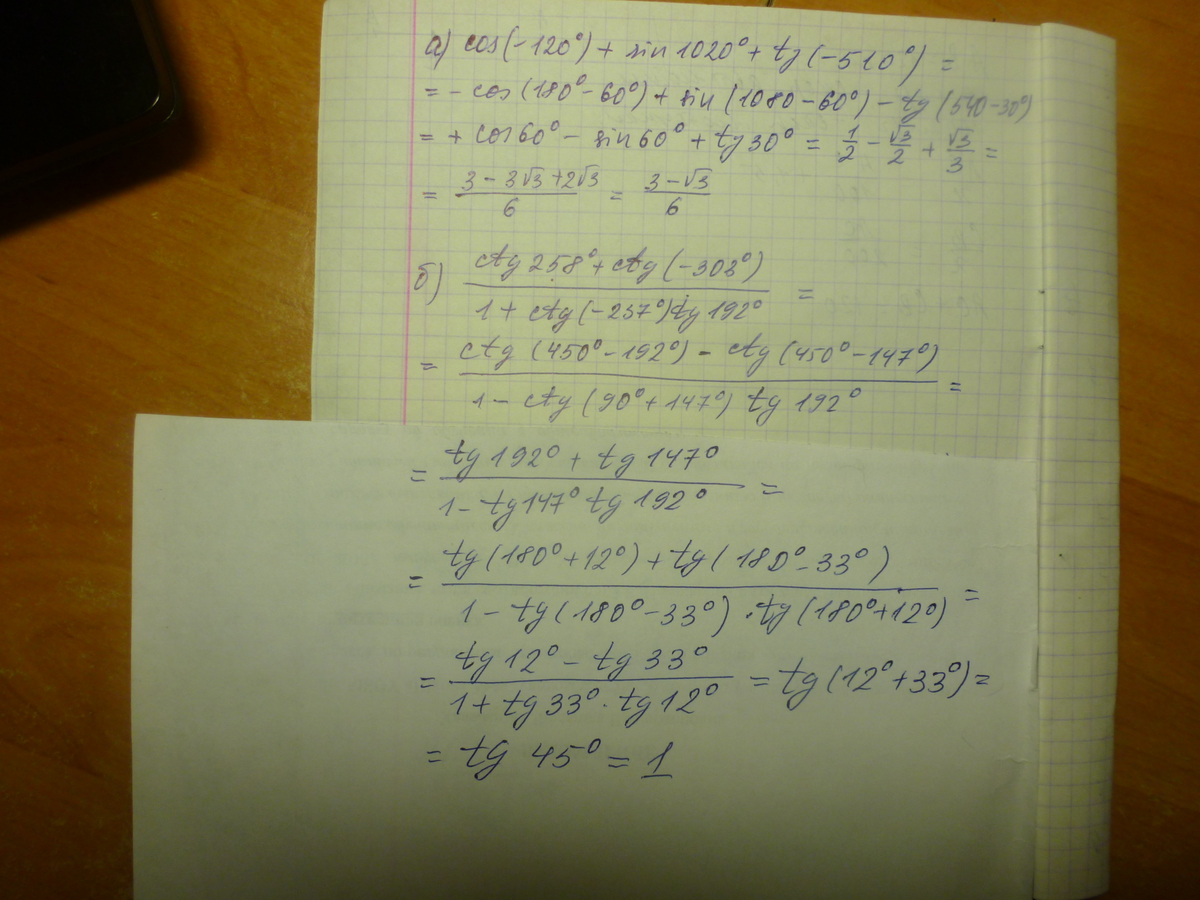 а) cos(-120°) + sin 1020° + tg(-510°) =
= - cos(180°-60°) + sin(1080-60°) - tg(540-30°)
= + cos 60° - sin 60° + tg 30° = 1/2 - √3/2 + √3/3 =
= (3 - 3√3 + 2√3)/6 = (3-√3)/6
б) (ctg 258° + ctg(-303°))/(1 + ctg(-237°)tg 192°) =
= (ctg(450°-192°) - ctg(450°-147°))/(1 - ctg(90°+147°) tg 192°) =
= (tg 192° + tg 147°)/(1 - tg 147° tg 192°) =
= (tg(180°+12°) + tg(180°-33°))/(1 - tg(180°-33°)·tg(180°+12°)) =
= (tg 12° - tg 33°)/(1 + tg 33°·tg 12°) = tg(12°+33°) =
= tg 45° = 1